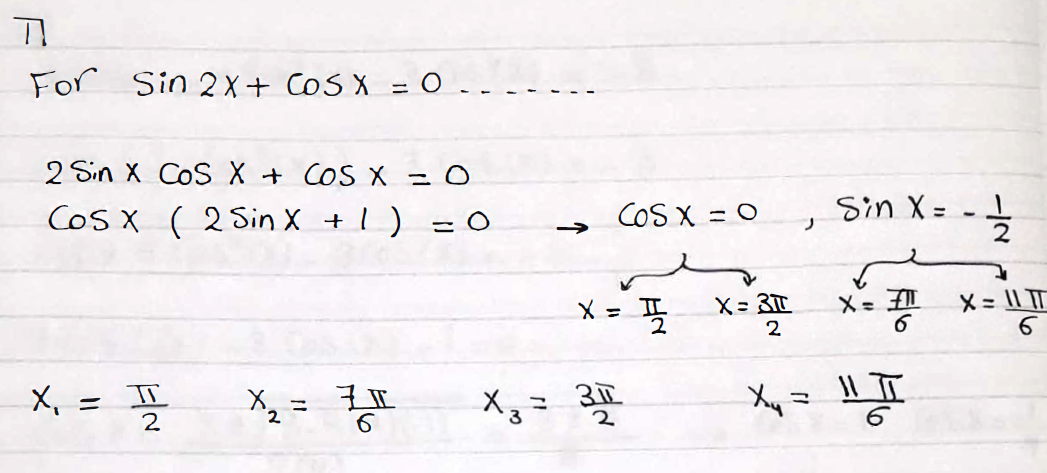 π
For Sin 2x + Cos x = 0 .......
2 Sin x Cos x + Cos x = 0
Cos x ( 2 Sin x + 1 ) = 0 → Cos x = 0 , Sin x = - 1/2
x = π/2 x = 3π/2 x = 7π/6 x = 11π/6
x₁ = π/2 x₂ = 7π/6 x₃ = 3π/2 x₄ = 11π/6